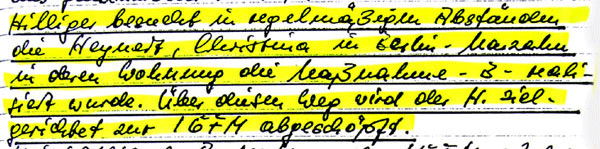 Hilliger besucht in regelmäßigen Abständen
die Heynert, Christina in Berlin-Marzahn
in deren Wohnung die Maßnahme -B- reali-
siert wurde. Über diesen Weg wird der H. ziel-
gerichtet zur IGFM abgeschöpft.